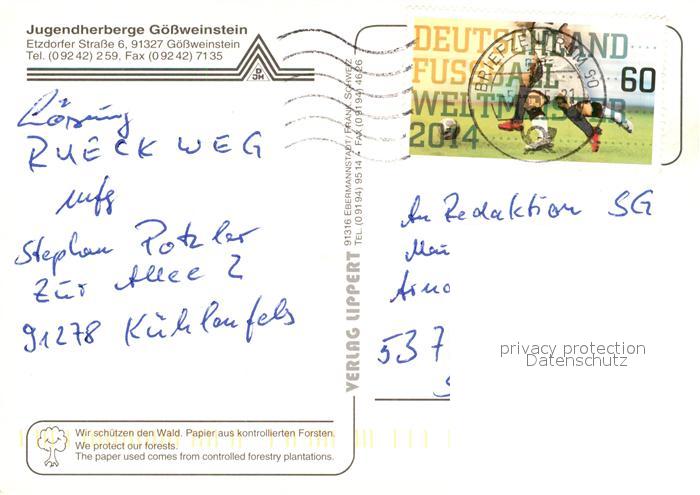 Jugendherberge Gößweinstein
Etzdorfer Straße 6, 91327 Gößweinstein
Tel. (0 92 42) 2 59, Fax (0 92 42) 71 35
DJH
Lösung
RUECKWEG
mfg
Stephan Potzler
Zur Allee 2
91278 Kühlenfels
VERLAG LIPPERT
91316 EBERMANNSTADT/FRÄNK. SCHWEIZ
TEL. (0 91 94) 95 14 • FAX (0 91 94) 46 26
DEUTSCHLAND
FUSSBALL
WELTMEISTER
2014
60
BRIEFZENTRUM 90
An Redaktion SG
537
privacy protection
Datenschutz
Wir schützen den Wald. Papier aus kontrollierten Forsten.
We protect our forests.
The paper used comes from controlled forestry plantations.